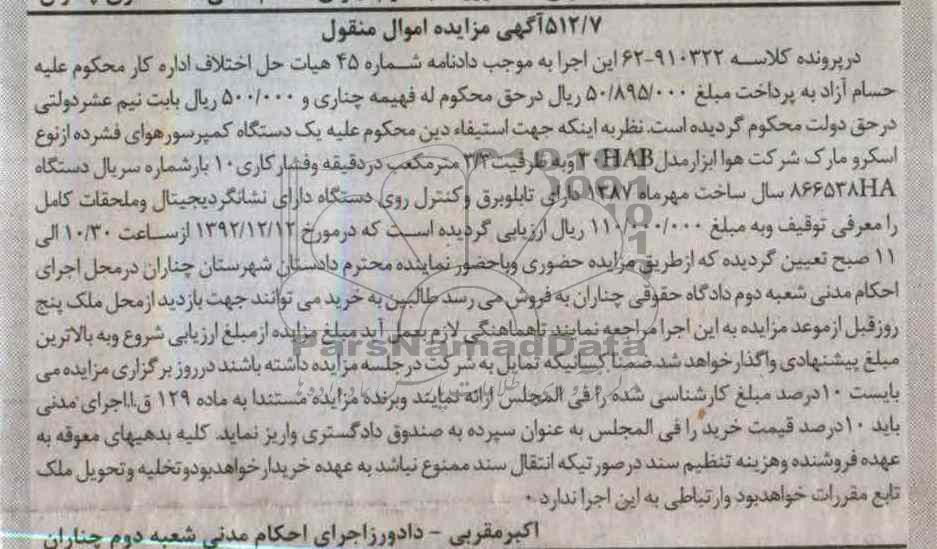 ۵۱۲/۷آگهی مزایده اموال منقول
درپرونده کلاسه ۹۱۰۳۲۲-۶۲ این اجرا به موجب دادنامه شماره ۴۵ هیات حل اختلاف اداره کار محکوم علیه
حسام آزاد به پرداخت مبلغ ۵۰/۸۹۵/۰۰۰ ریال درحق محکوم له فهیمه چناری و ۵۰۰/۰۰۰ ریال بابت نیم عشردولتی
درحق دولت محکوم گردیده است. نظربه اینکه جهت استیفاء دین محکوم علیه یک دستگاه کمپرسورهوای فشرده ازنوع
اسکرو مارک شرکت هوا ابزارمدل ۳۰HAB وبه ظرفیت ۳/۴ مترمکعب دردقیقه وفشارکاری ۱۰ بارشماره سریال دستگاه
۸۶۶۵۳۸HA سال ساخت مهرماه ۱۳۸۷ دارای تابلوبرق وکنترل روی دستگاه دارای نشانگردیجیتال وملحقات کامل
را معرفی توقیف وبه مبلغ ۱۱۰/۰۰۰/۰۰۰ ریال ارزیابی گردیده است که درمورخ ۱۳۹۲/۱۲/۱۲ ازساعت ۱۰/۳۰ الی
۱۱ صبح تعیین گردیده که ازطریق مزایده حضوری وباحضور نماینده محترم دادستان شهرستان چناران درمحل اجرای
احکام مدنی شعبه دوم دادگاه حقوقی چناران به فروش می رسد طالبین به خرید می توانند جهت بازدید ازمحل ملک پنج
روزقبل ازموعد مزایده به این اجرا مراجعه نمایند تاهماهنگی لازم بعمل آید مبلغ مزایده ازمبلغ ارزیابی شروع وبه بالاترین
مبلغ پیشنهادی واگذارخواهد شد.ضمنا کسانیکه تمایل به شرکت درجلسه مزایده داشته باشند درروز برگزاری مزایده می
بایست ۱۰درصد مبلغ کارشناسی شده را فی المجلس ارائه نمایند وبرنده مزایده مستندا به ماده ۱۲۹ ق.ا.اجرای مدنی
باید ۱۰درصد قیمت خرید را فی المجلس به عنوان سپرده به صندوق دادگستری واریز نماید. کلیه بدهیهای معوقه به
عهده فروشنده وهزینه تنظیم سند درصورتیکه انتقال سند ممنوع نباشد به عهده خریدارخواهدبودوتخلیه وتحویل ملک
تابع مقررات خواهدبود وارتباطی به این اجرا ندارد.
اکبرمقربی - دادورزاجرای احکام مدنی شعبه دوم چناران
ParsNamadData